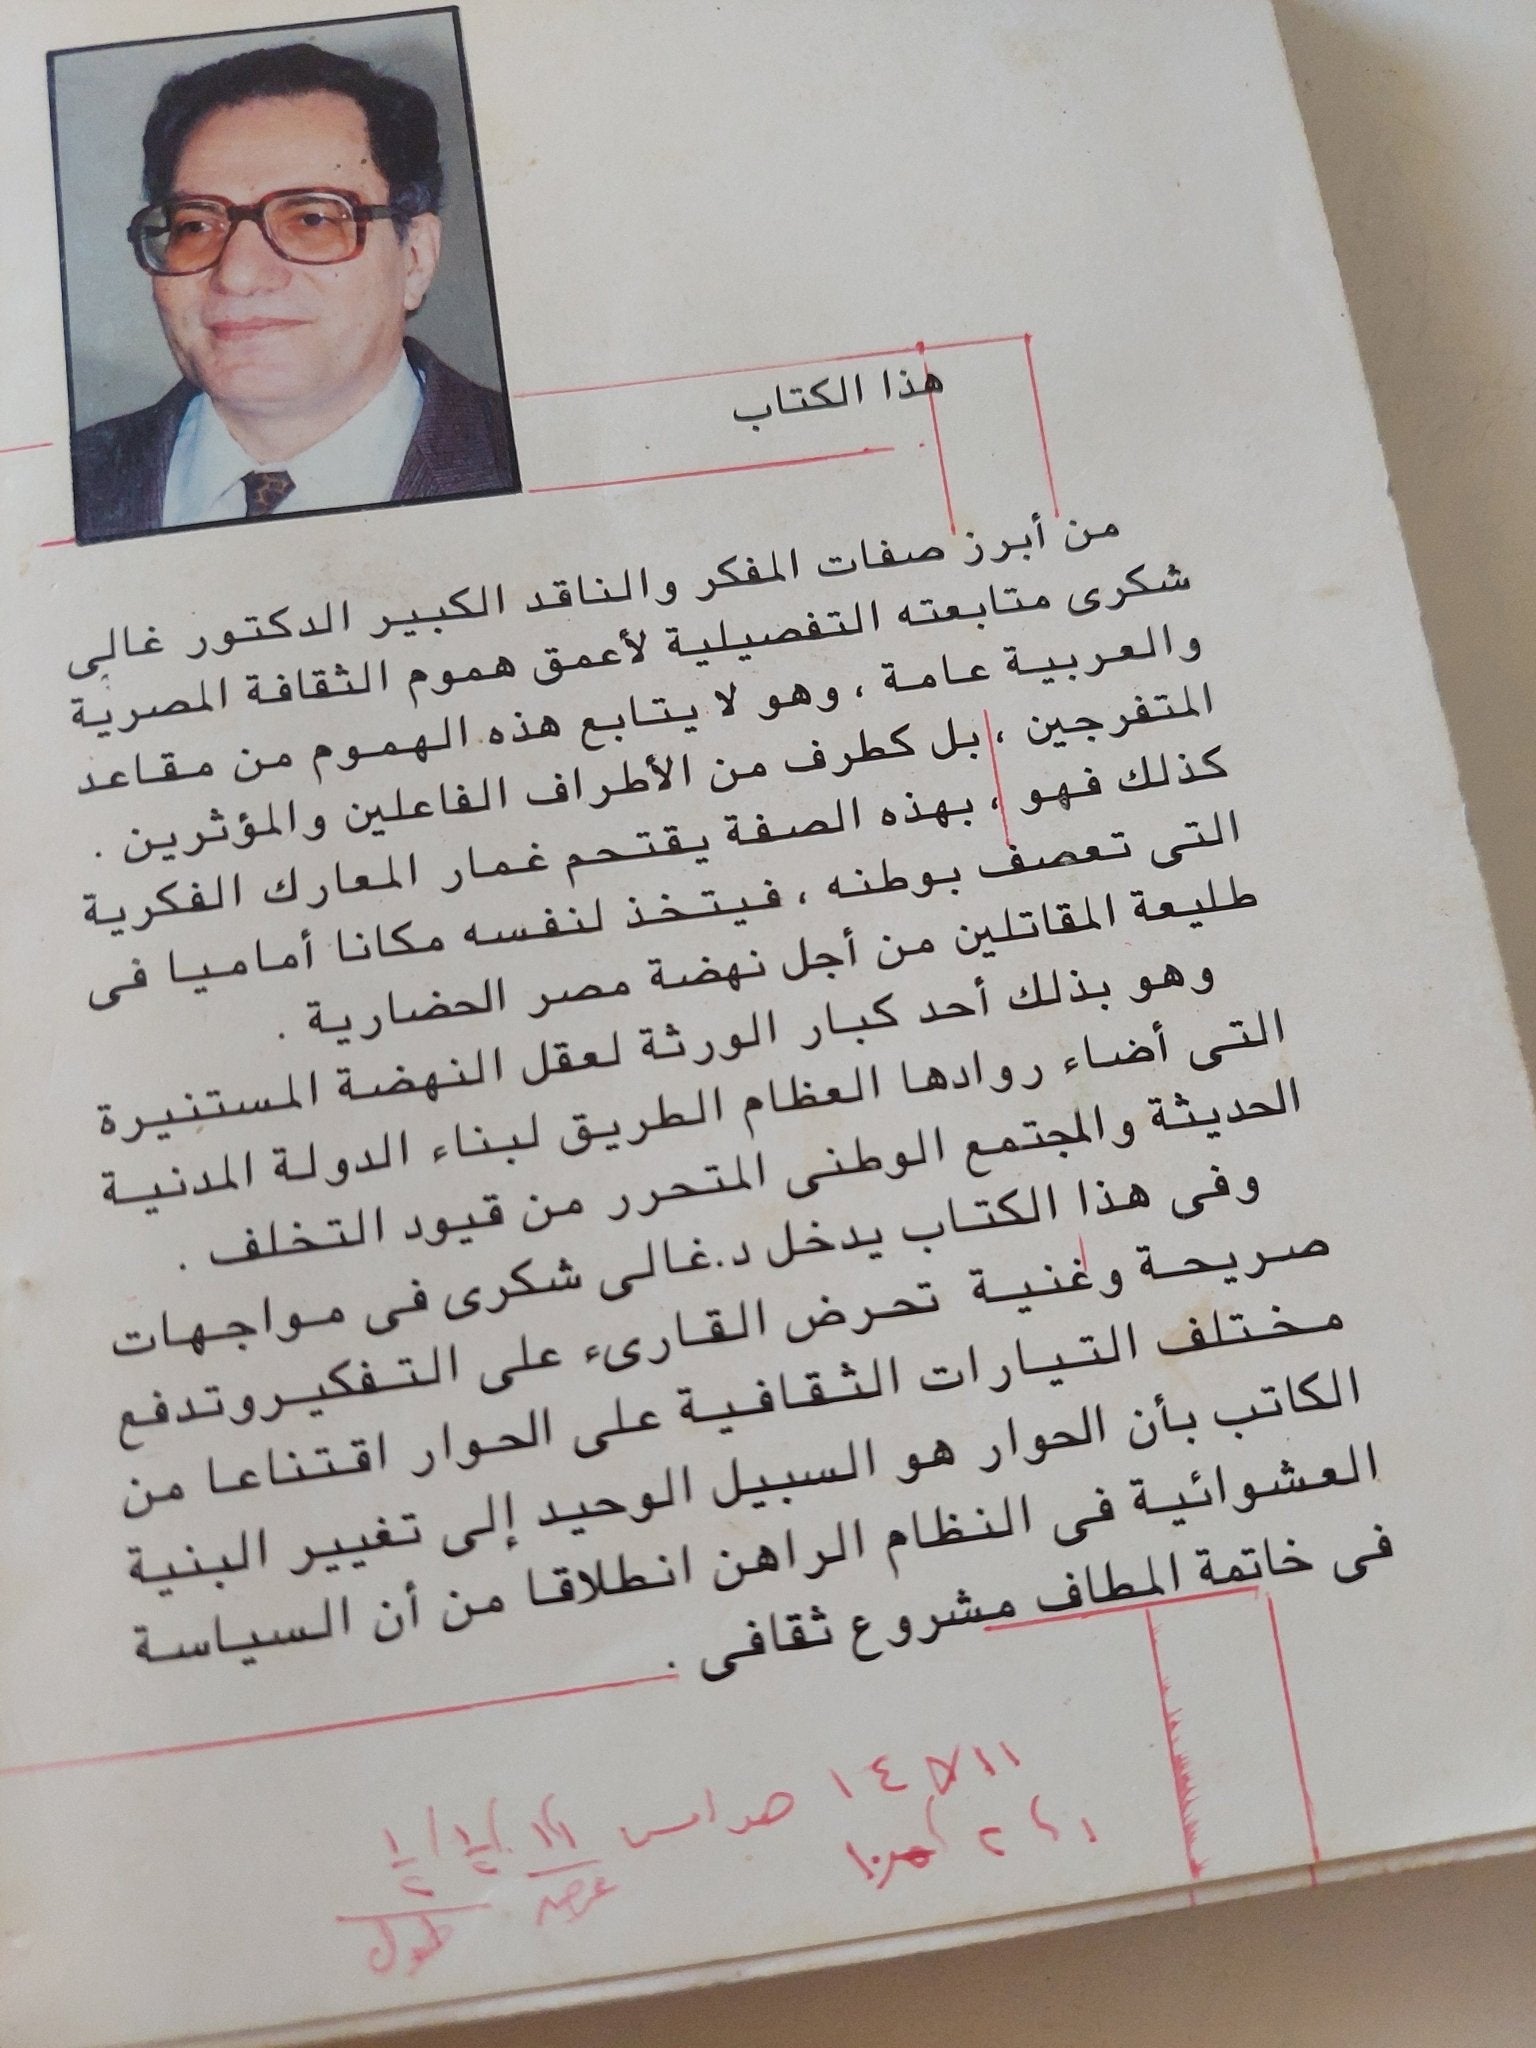 هذا الكتاب
من أبرز صفات المفكر والناقد الكبير الدكتور غالى
شكرى متابعته التفصيلية لأعمق هموم الثقافة المصرية
والعربية عامة ، وهو لا يتابع هذه الهموم من مقاعد
المتفرجين ، بل كطرف من الأطراف الفاعلين والمؤثرين .
كذلك فهو ، بهذه الصفة يقتحم غمار المعارك الفكرية
التى تعصف بوطنه ، فيتخذ لنفسه مكانا أماميا فى
طليعة المقاتلين من أجل نهضة مصر الحضارية .
وهو بذلك أحد كبار الورثة لعقل النهضة المستنيرة
التى أضاء روادها العظام الطريق لبناء الدولة المدنية
الحديثة والمجتمع الوطنى المتحرر من قيود التخلف .
وفى هذا الكتاب يدخل د.غالى شكرى فى مواجهات
صريحة وغنية تحرض القارىء على التفكيروتدفع
مختلف التيارات الثقافية على الحوار اقتناعا من
الكاتب بأن الحوار هو السبيل الوحيد إلى تغيير البنية
العشوائية فى النظام الراهن انطلاقا من أن السياسة
فى خاتمة المطاف مشروع ثقافى .
عرض
طول